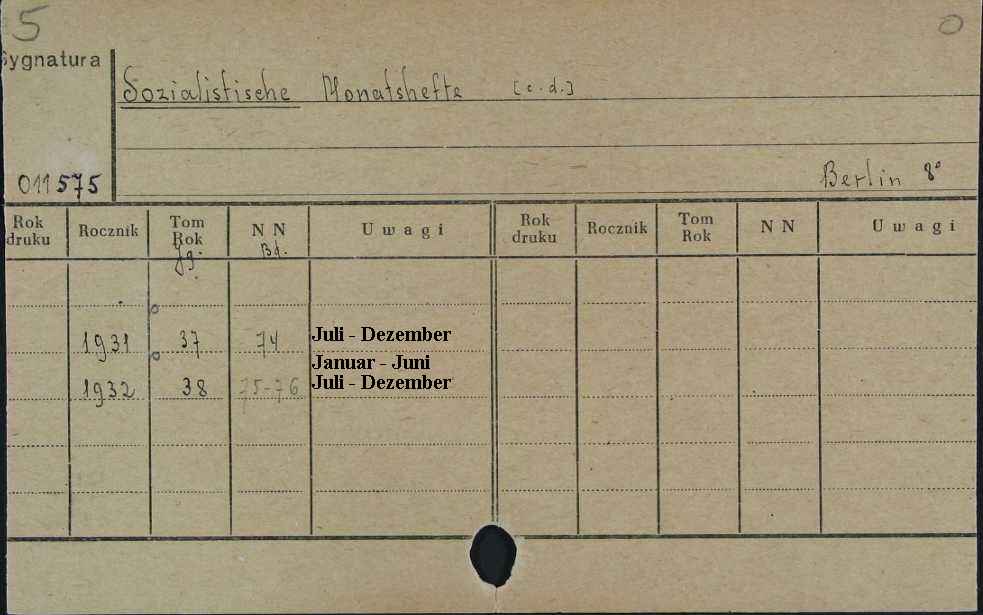 5 0
Sygnatura
Sozialistische Monatshefte [c.d.]
011575 Berlin 8°
Rok druku Rocznik Tom Rok N N Uwagi Rok druku Rocznik Tom Rok N N Uwagi
Jg. Bd.
1931 37 74 Juli - Dezember
Januar - Juni
1932 38 75-76 Juli - Dezember